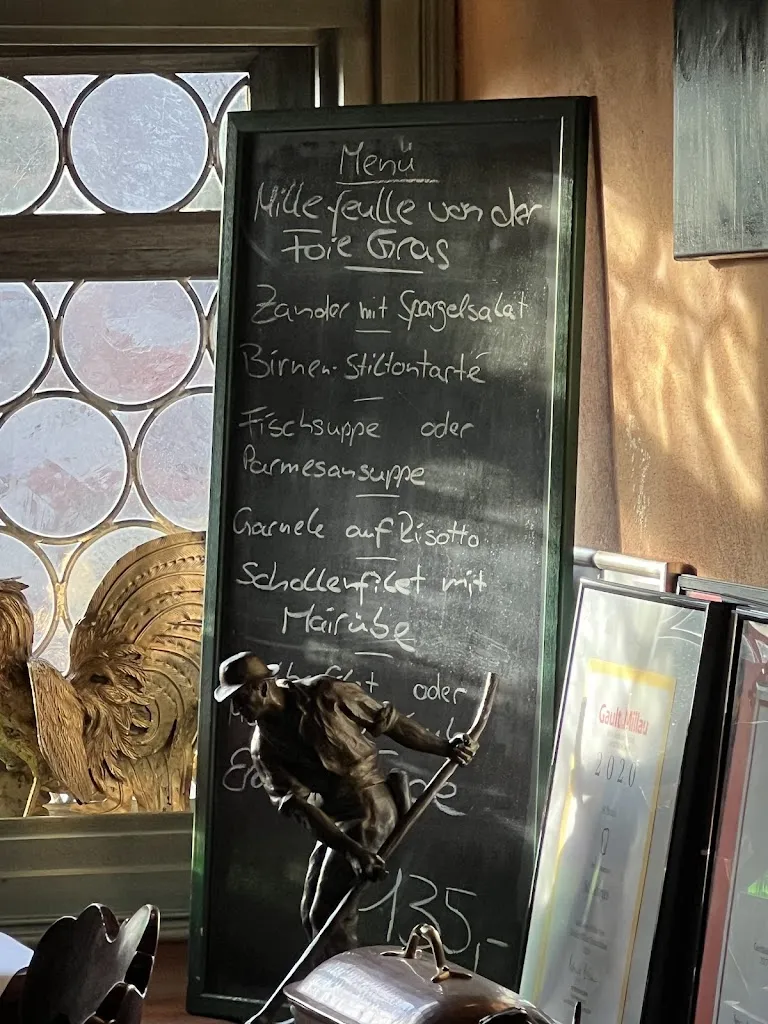 Menü
Millefeulle von der
Foie Gras
Zander mit Spargelsalat
Birnen-Stiltontarté
Fischsuppe oder
Parmesansuppe
Garnele auf Risotto
Schollenfilet mit
Mairübe
oder
135,-
Gault&Millau
2020